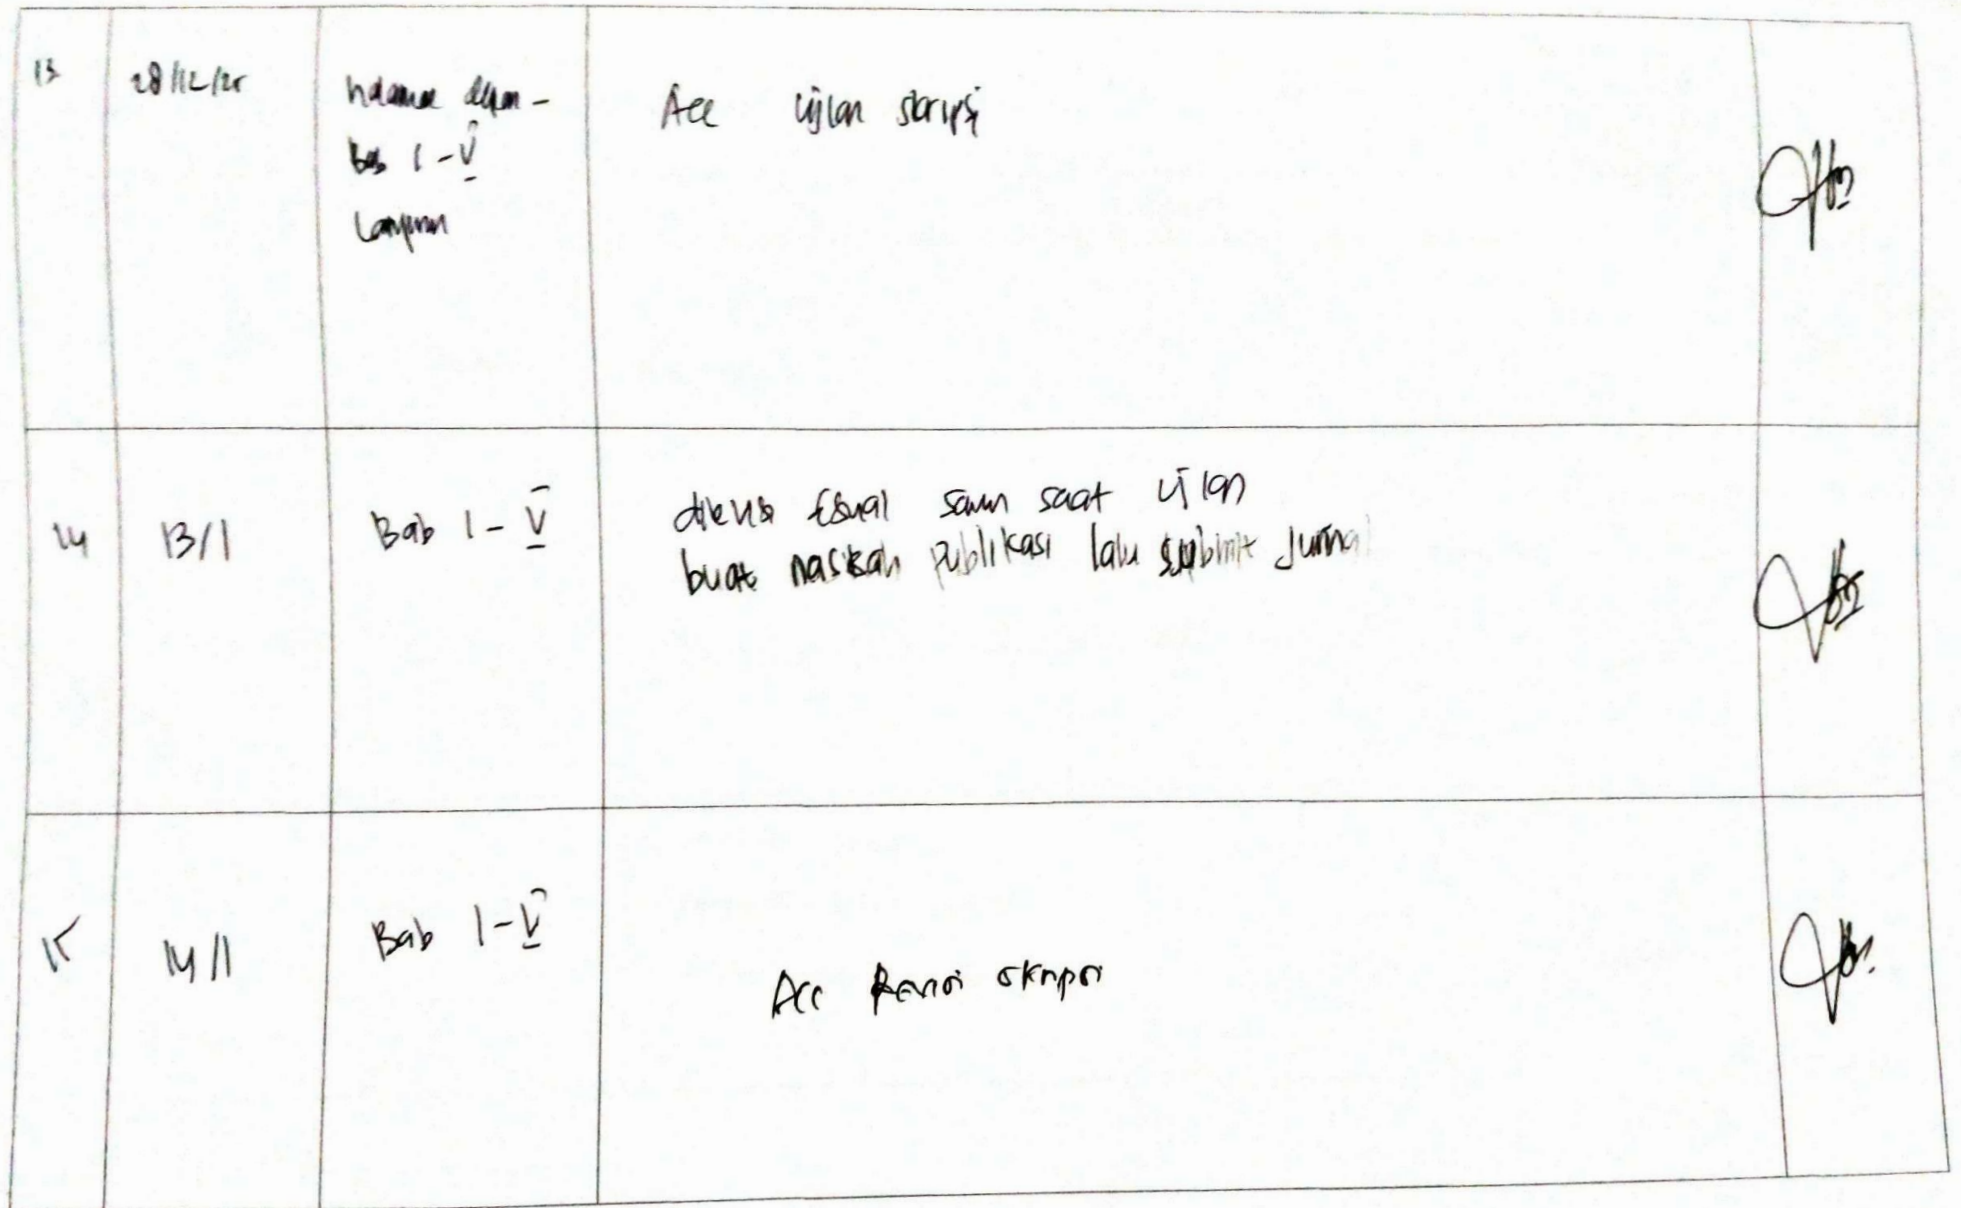 13 28/12/25 halaman depan -
Acc ujian skripsi
Bab 1 - V
Lampiran
14 13/1 Bab 1 - V
direvisi sesuai saran saat ujian
buat naskah publikasi lalu submit jurnal
15 14/1 Bab 1 - V
Acc Revisi skripsi